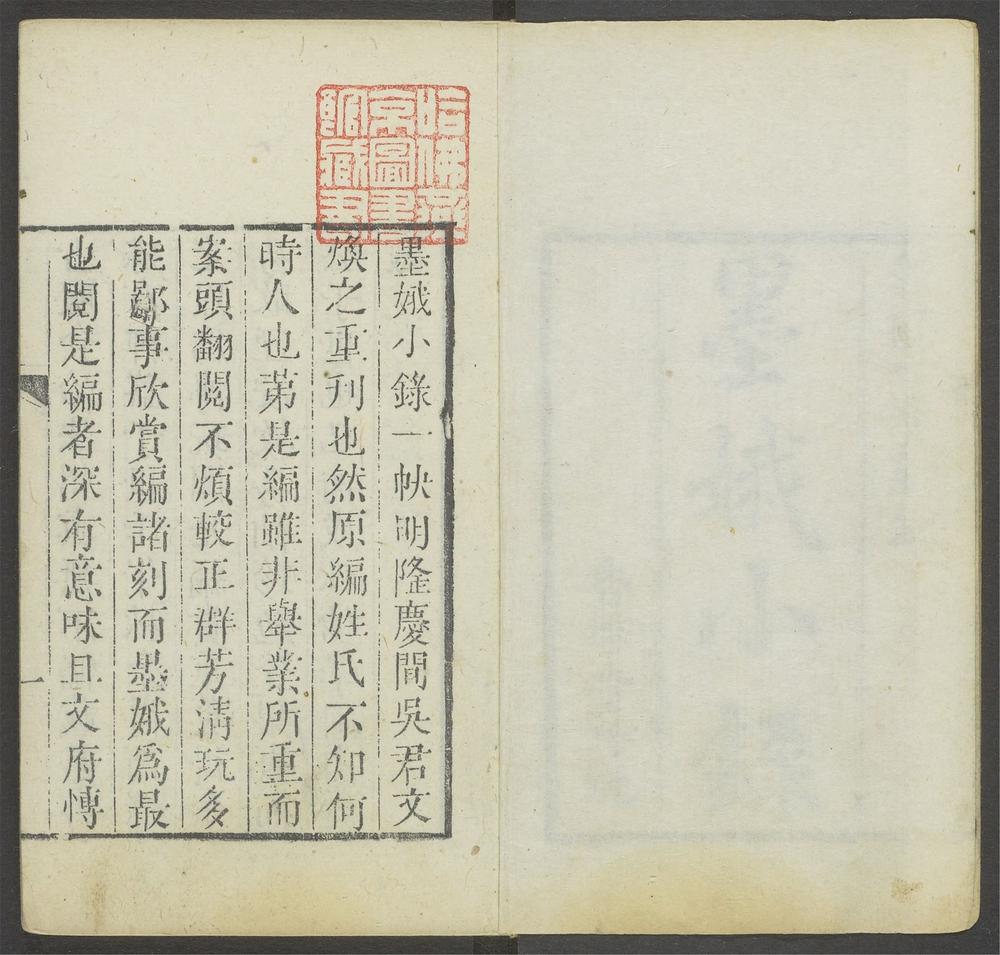 哈佛燕
京圖書
館藏
墨娥小錄一帙明隆慶間吳君文
煥之重刊也然原編姓氏不知何
時人也苐是編雖非舉業所重而
案頭翻閱不煩較正群芳清玩多
能鄙事欣賞編諸刻而墨娥爲最
也閱是編者深有意味且文府愽
一